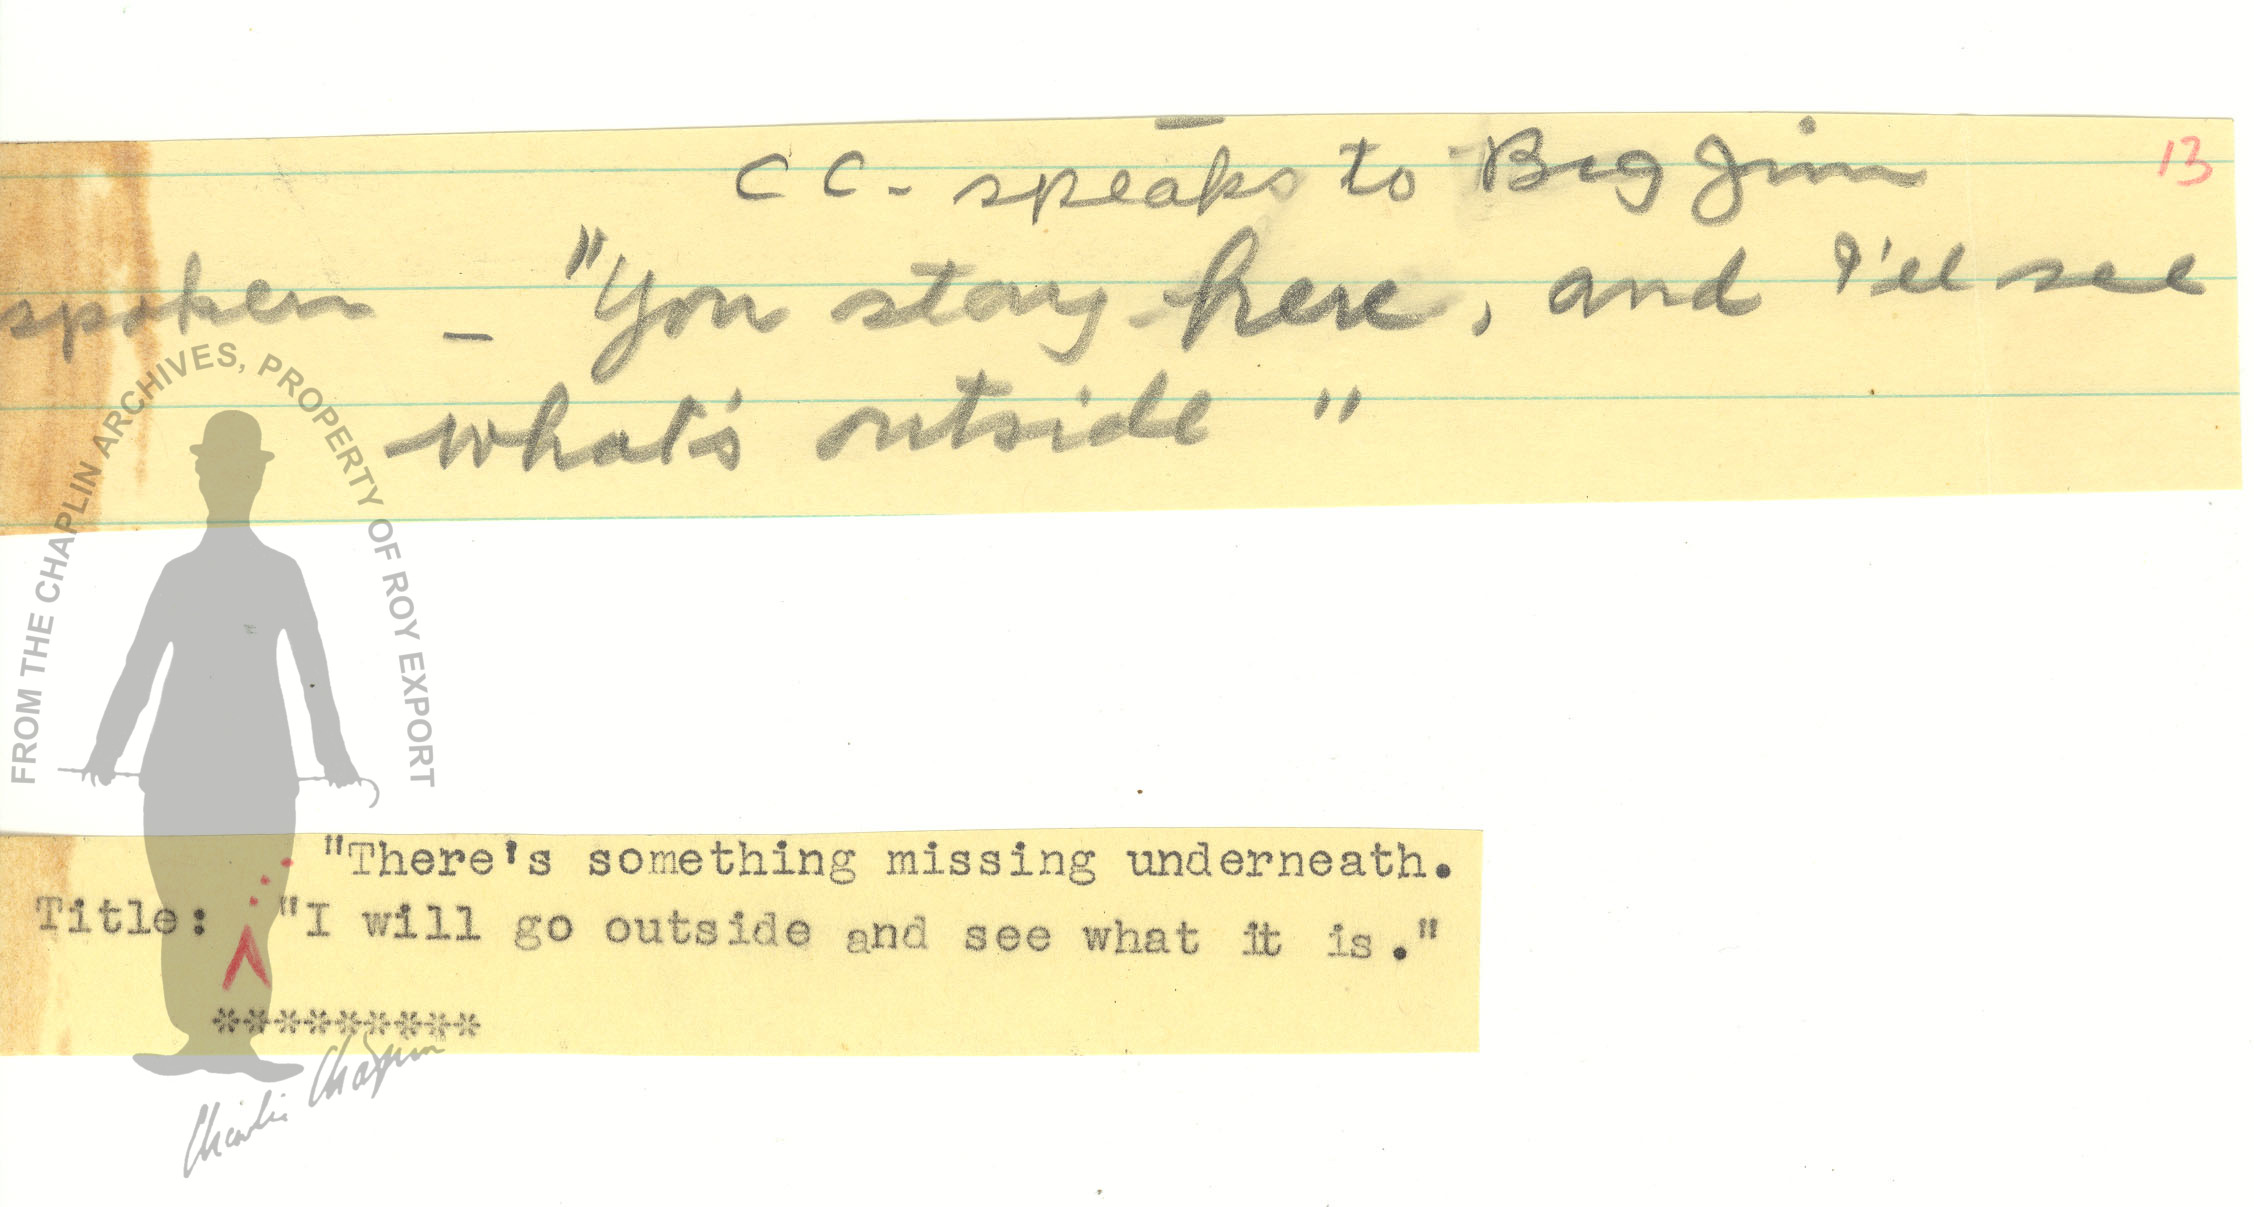 13
CC- speaks to Big Jim
spoken – "You stay here, and I'll see
what's outside"
FROM THE CHAPLIN ARCHIVES, PROPERTY OF ROY EXPORT
"There's something missing underneath.
Title: "I will go outside and see what it is."
*********
Charlie Chaplin